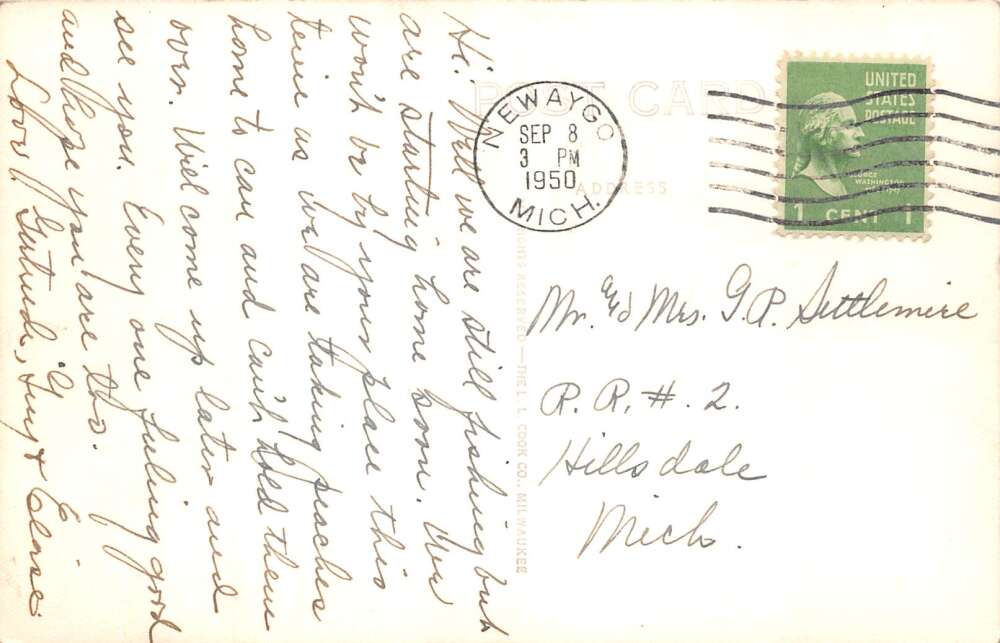 POST CARD
ADDRESS
NEWAYGO
SEP 8
3 PM
1950
MICH.
UNITED
STATES
POSTAGE
GEORGE
WASHINGTON
1 CENT 1
Hi! Well we are still fishing but
are starting home soon. We
won't be by your place this
time as we are taking peaches
home to can and can't hold them
over. We'll come up later and
see you. Every one feeling good
and hope you are tho.
Love Gertrude, Guy & Eloise
Mr. and Mrs. G. P. Settlemire
R. R. #. 2.
Hillsdale
Mich.
RIGHTS RESERVED — THE L. L. COOK CO., MILWAUKEE